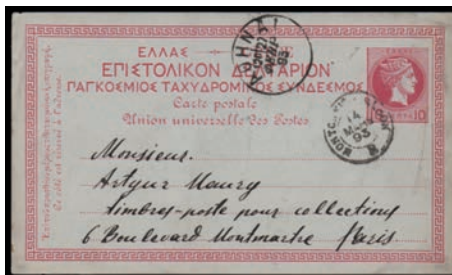 ΑΘΗΝΑΙ
93
ΕΛΛΑΣ
ΕΠΙΣΤΟΛΙΚΟΝ ΔΕΛΤΑΡΙΟΝ
ΠΑΓΚΟΣΜΙΟΣ ΤΑΧΥΔΡΟΜΙΚΟΣ ΣΥΝΔΕΣΜΟΣ
Carte postale
Union universelle des Postes
10 10
14
93
Monsieur.
Artyur Maury
timbres-poste pour collections
6 Boulevard Montmartre Paris.